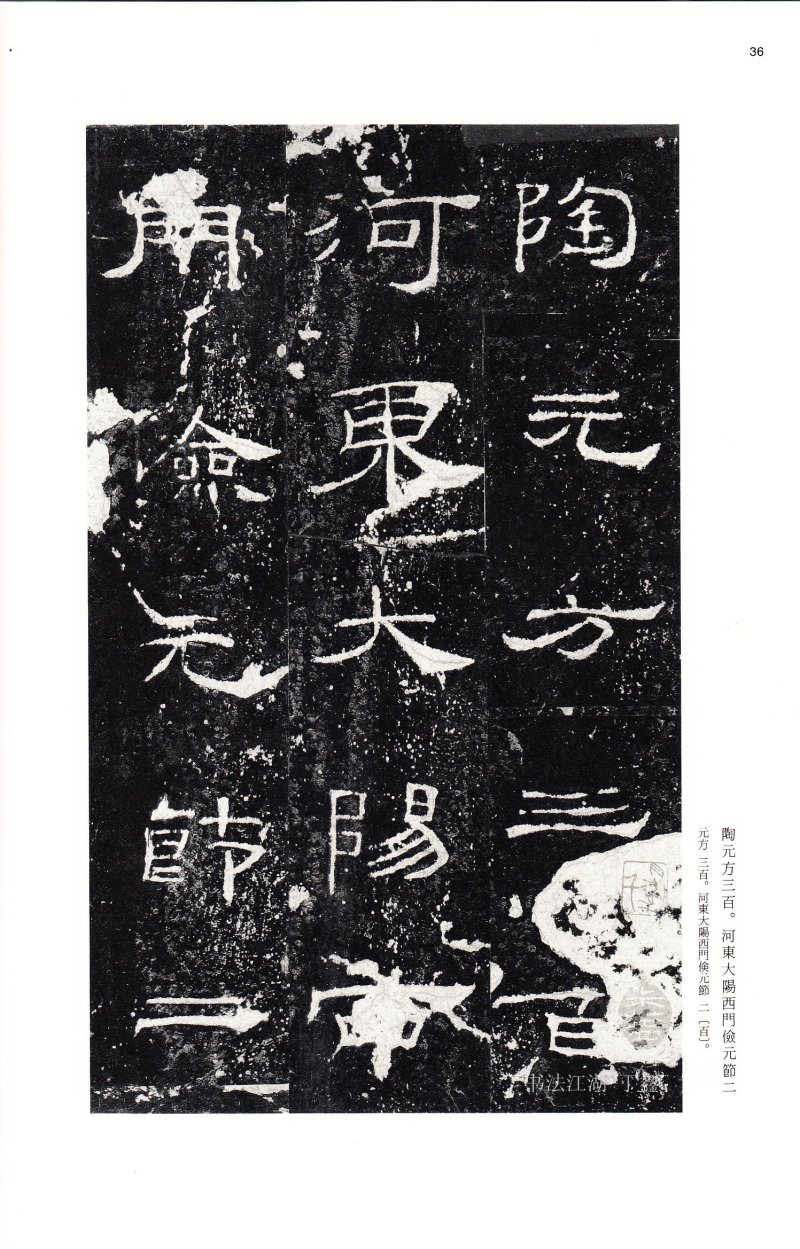 36
陶元方三百
河東大陽西
門儉元節二
陶元方三百。河東大陽西門儉元節二
元方 三百。河東大陽西門儉元節 二〔百〕。
书法江湖